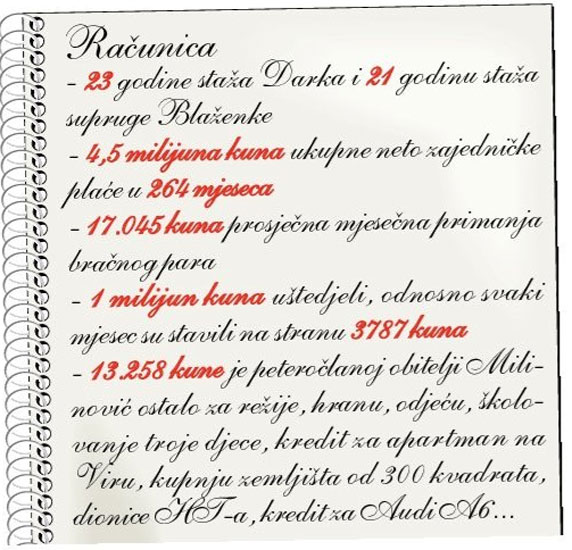 Računica
- 23 godine staža Darka i 21 godinu staža
supruge Blaženke
- 4,5 milijuna kuna ukupne neto zajedničke
plaće u 264 mjeseca
- 17.045 kuna prosječna mjesečna primanja
bračnog para
- 1 milijun kuna uštedjeli, odnosno svaki
mjesec su stavili na stranu 3787 kuna
- 13.258 kune je peteročlanoj obitelji Mili-
nović ostalo za režije, hranu, odjeću, školo-
vanje troje djece, kredit za apartman na
Viru, kupnju zemljišta od 300 kvadrata,
dionice HT-a, kredit za Audi A6...